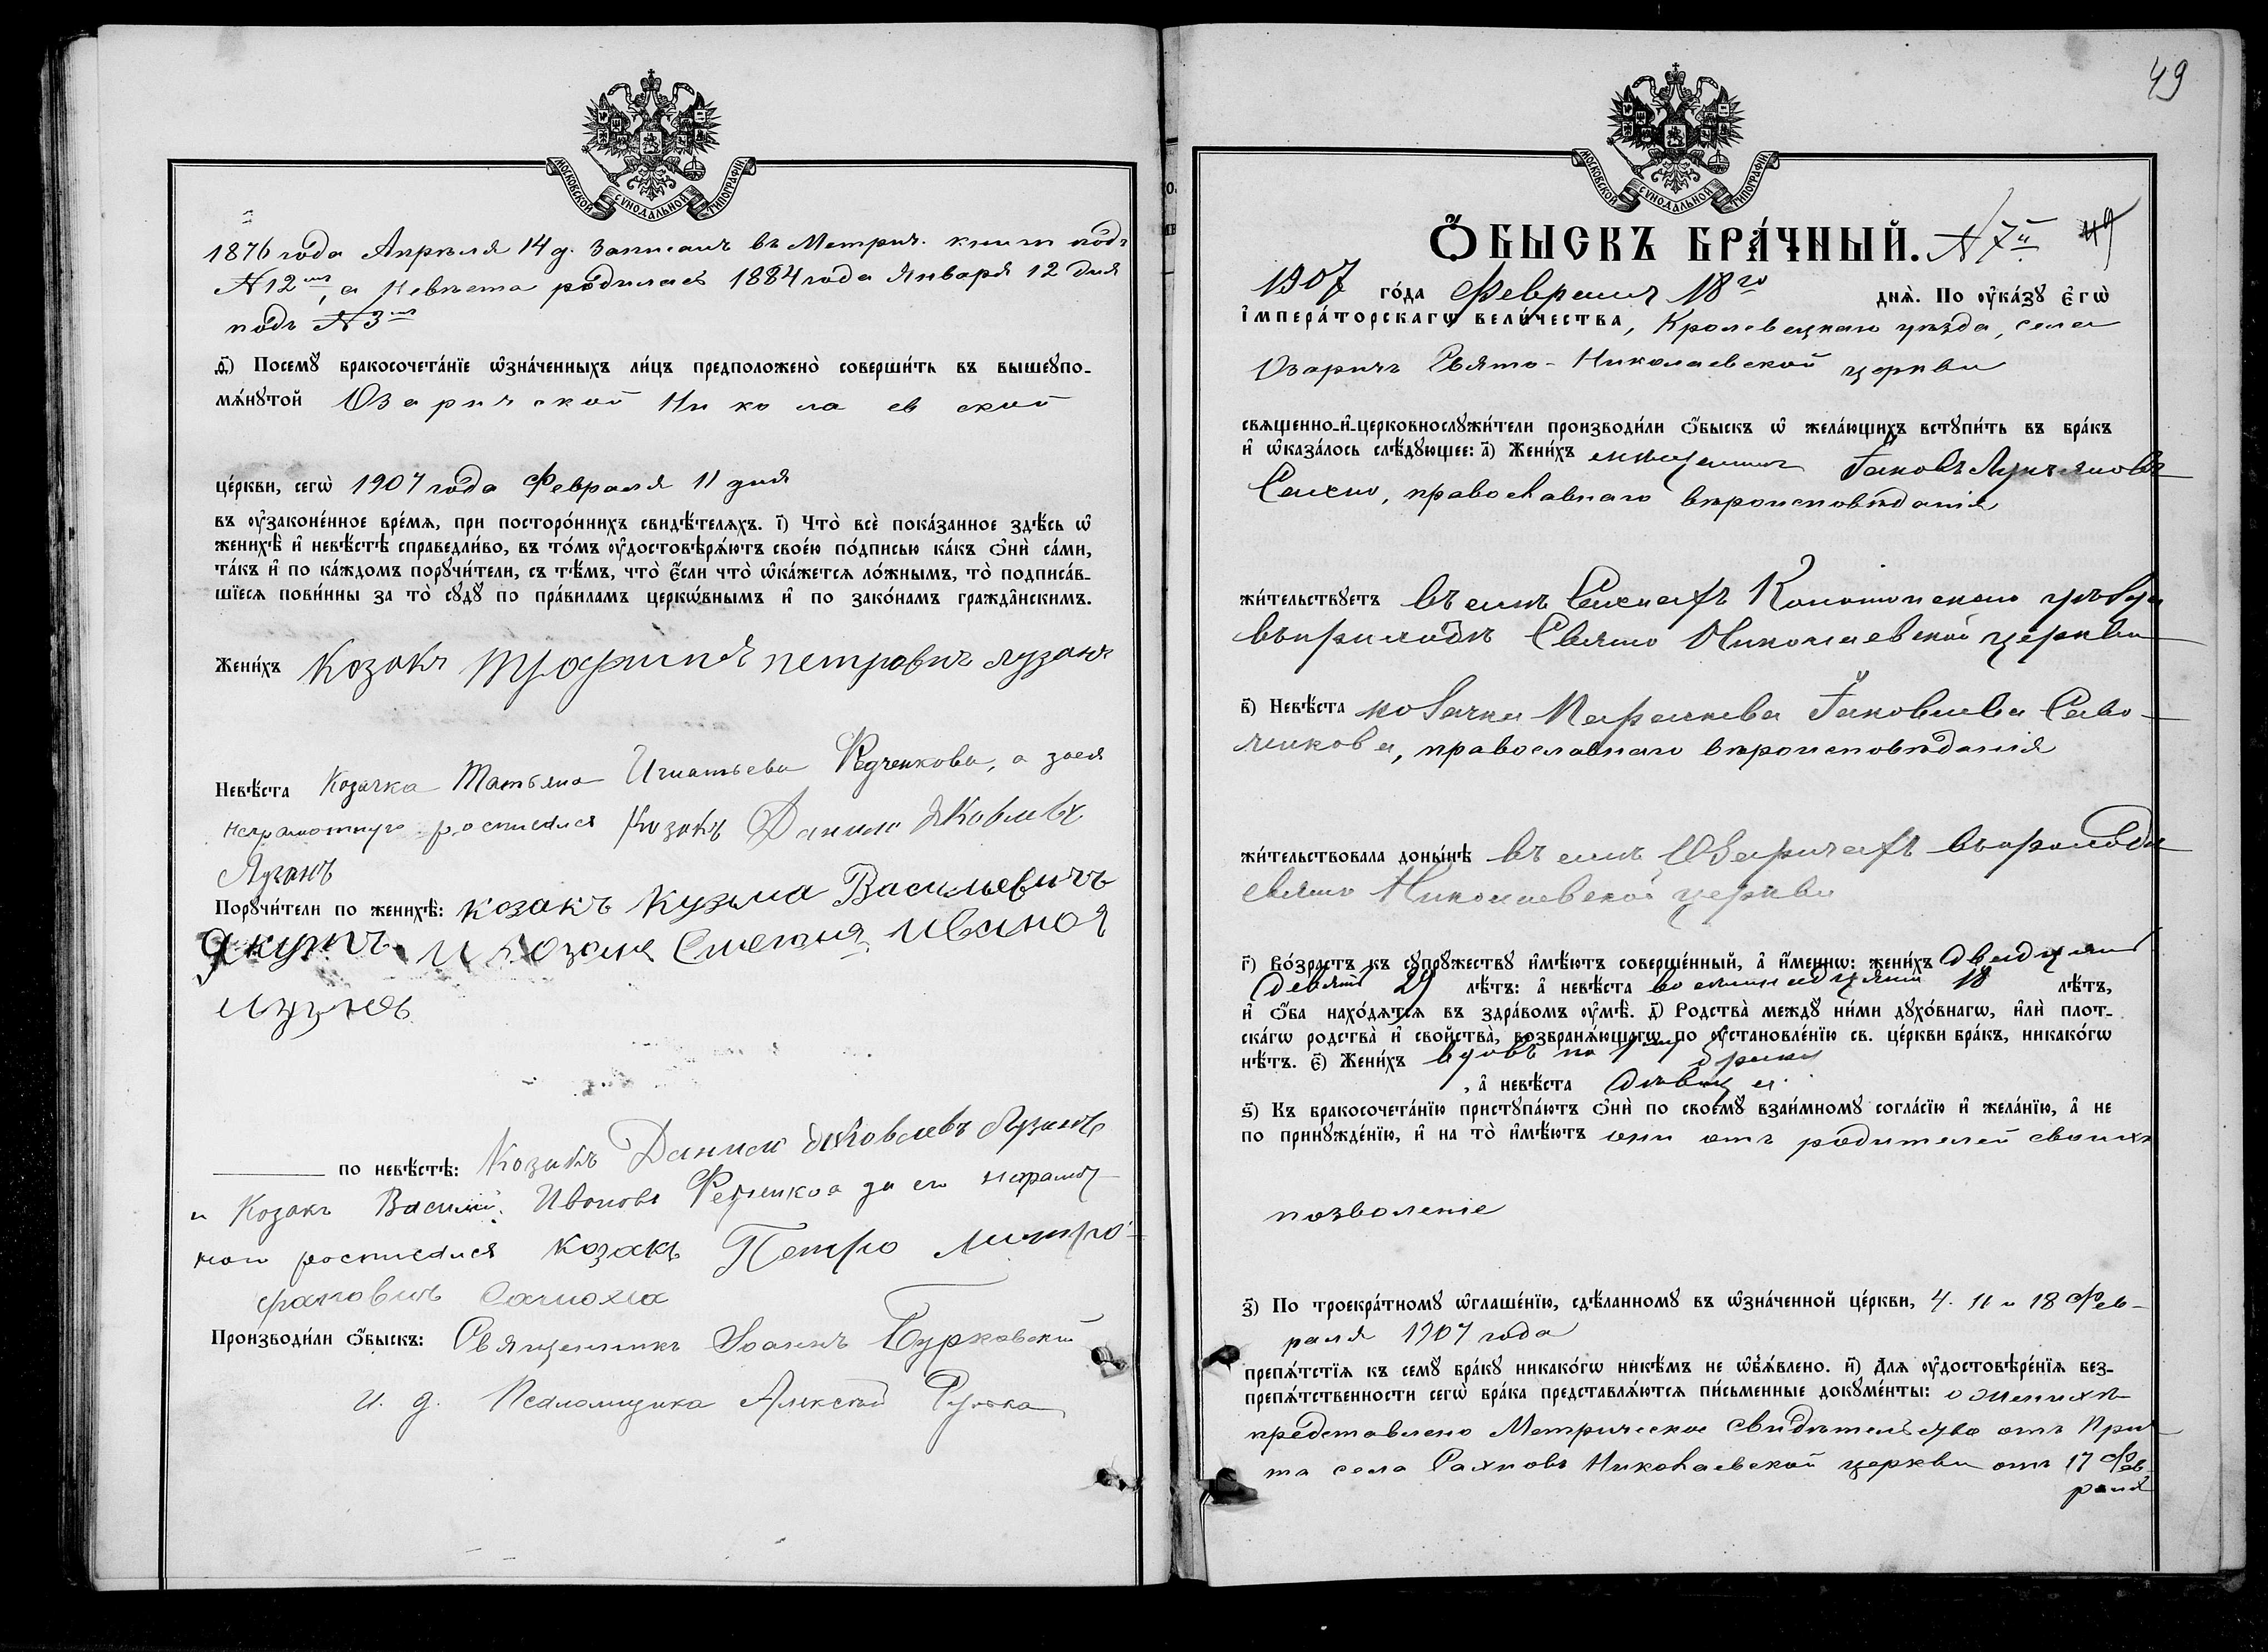 МОСКОВСКОЙ СѴНОДАЛЬНОЙ ТИПОГРАФІИ
1876 года Апрѣля 14 д. записанъ въ Метрич. книгѣ подъ
№ 12мъ, а Невѣста родилась 1884 года Января 12 дня
подъ № 3мъ
д҃) Посемꙋ̀ бракосочета́нїе ѡ҆зна́ченныхъ ли́цъ предположено̀ соверши́ть въ вышеꙋпо-
мѧ́нꙋтой Озаричской Николаевской
це́ркви, сегѡ̀ 1907 года Февраля 11 дня
въ ᲂу҆зако́ненное вре́мѧ, при посторо́ннихъ свидѣ́телѧхъ. і҃) Что̀ всѐ пока́занное здѣ́сь ѡ҆
женихѣ̀ и҆ невѣ́стѣ справедли́во, въ то́мъ ᲂу҆достовѣрѧ́ютъ свое́ю по́дписью ка́къ ѻ҆нѝ са́ми,
та́къ и҆ по ка́ждомъ порꙋчи́тели, съ тѣ́мъ, что̀ є҆́сли что̀ ѡ҆ка́жетсѧ ло́жнымъ, то̀ подписа́в-
шїесѧ пови́нны за то̀ сꙋдꙋ̀ по пра́виламъ церко́внымъ и҆ по зако́намъ гражда́нскимъ.
Жени́хъ Козакъ Трофимъ петровичъ лузанъ
Невѣ́ста Козачка Татьяна Игнатьева Федченкова, а за нея
неграмотную росписался Козакъ Данило Яковлевъ
Лузанъ
Порꙋчи́тели по женихѣ̀: козакъ Кузьма Васильевичъ
Якутъ и козакъ
по невѣ́стѣ: Козакъ Данило Яковлевъ Лузанъ
и Козакъ Василій Ивановъ Федченко а за его неграмот-
наго росписался козакъ Петро Митро-
фановичъ
Производи́ли ѻ҆́быскъ: Священникъ Іоаннъ Бурковскій
и. д. Псаломщика Алексѣй
49
МОСКОВСКОЙ СѴНОДАЛЬНОЙ ТИПОГРАФІИ
Ѻ҆́БЫСКЪ БРА́ЧНЫЙ. № 7й 49
1907 го́да Февраля 18го днѧ̀. По ᲂу҆ка́зꙋ є҆гѡ̀
і҆мпера́торскагѡ вели́чества, Кролевецкаго уѣзда, села
Озаричъ Свято-Николаевской церкви
свѧщенно-и҆-церковнослꙋжи́тели производи́ли ѻ҆́быскъ ѡ҆ жела́ющихъ встꙋпи́ть въ бра́къ
и҆ ѡ҆каза́лось слѣ́дꙋющее: а҃) Жени́хъ мѣщанинъ Іаковъ Лукьяновъ
православнаго вѣроисповѣданія
жи́тельствꙋетъ въ селѣ Сахнахъ Конотопскаго уѣзда
въ приходѣ Свято Николаевской церкви
в҃) Невѣ́ста козачка Параскева Іаковлева Саво-
православнаго вѣроисповѣданія
жи́тельствовала доны́нѣ въ селѣ Озаричахъ въ приходѣ
свято Николаевской церкви
г҃) Во́зрастъ къ сꙋпрꙋ́жествꙋ и҆мѣ́ютъ соверше́нный, а҆ и҆́меннѡ: жени́хъ двадцать
девять 29 лѣ́тъ: а҆ невѣ́ста восемнадцать 18 лѣ́тъ,
и҆ ѻ҆́ба нахо́дѧтсѧ въ здра́вомъ ᲂу҆мѣ̀. д҃) Родства̀ междꙋ̀ ни́ми дꙋхо́внагѡ, и҆лѝ плот-
ска́гѡ родства̀ и҆ сво́йства̀, возбранѧ́ющагѡ по ᲂу҆становле́нїю св. це́ркви бра́къ, никако́гѡ
нѣ́тъ. є҃) Жени́хъ вдовъ по 1му браку
, а҆ невѣ́ста дѣвица.
ѕ҃) Къ бракосочета́нїю пристꙋпа́ютъ ѻ҆нѝ по своемꙋ̀ взаи́мномꙋ согла́сїю и҆ жела́нїю, а҆ не
по принꙋжде́нїю, и҆ на то̀ и҆мѣ́ютъ они отъ родителей своихъ
позволеніе
з҃) По троекра́тномꙋ ѡ҆глаше́нїю, сдѣ́ланномꙋ въ ѡ҆зна́ченной це́ркви, 4. 11 и 18 Фев-
раля 1907 года
препѧ́тстїѧ къ семꙋ̀ бра́кꙋ никако́гѡ никѣ́мъ не ѡ҆б̾ѧ́влено. и҃) Длѧ ᲂу҆достовѣре́нїѧ без-
препѧ́тственности сегѡ̀ бра́ка представлѧ́ютсѧ пи́сьменные докꙋме́нты: о женихѣ
представлено Метрическое свидѣтельство отъ Прич
та села Сахновъ Николаевской церкви отъ 17 Фев-
раля